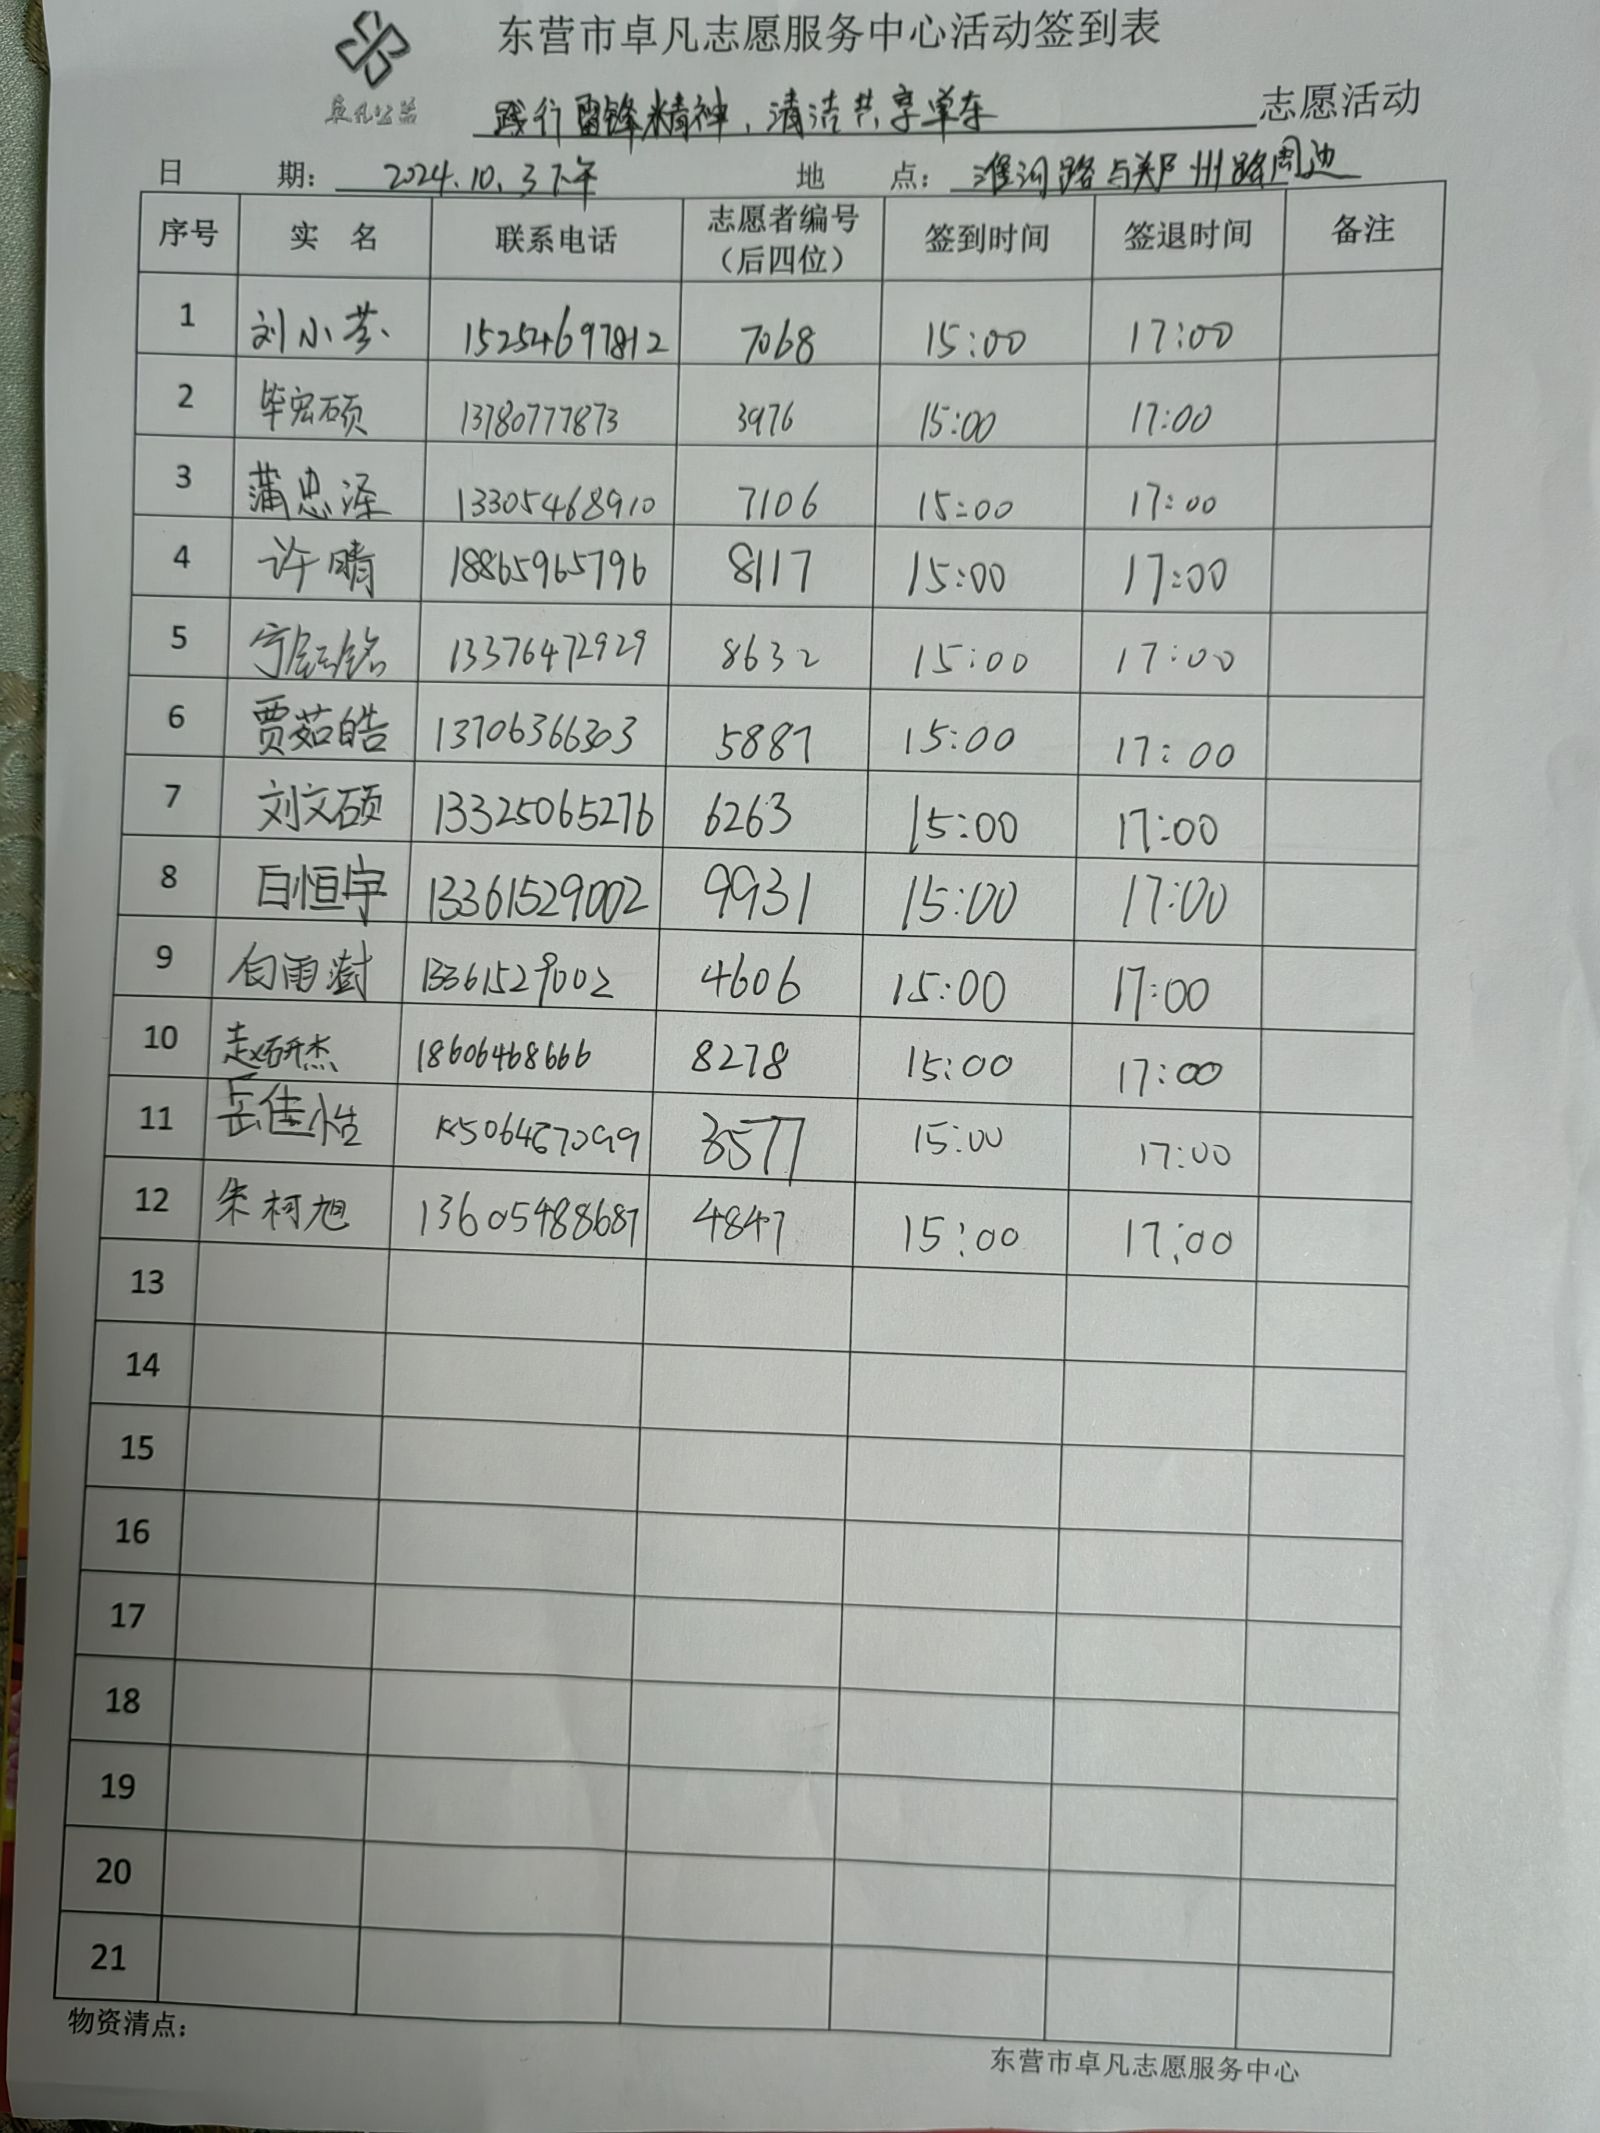 东营市卓凡志愿服务中心活动签到表
卓凡公益
践行雷锋精神,清洁共享单车 志愿活动
日 期: 2024.10.3下午 地 点: 淮河路与郑州路周边
序号 实 名 联系电话 志愿者编号(后四位) 签到时间 签退时间 备注
1 刘小芸 15254697812 7068 15:00 17:00
2 毕宏硕 13780777873 3976 15:00 17:00
3 蒲忠泽 13305468910 7106 15:00 17:00
4 许晴 18865965796 8117 15:00 17:00
5 13376472929 8632 15:00 17:00
6 贾茹皓 13706366303 5887 15:00 17:00
7 刘文硕 13325065276 6263 15:00 17:00
8 白恒宇 13361529002 9931 15:00 17:00
9 白雨澍 13361529002 4606 15:00 17:00
10 赵研杰 18606468666 8278 15:00 17:00
11 岳佳怡 3577 15:00 17:00
12 朱柯旭 13605488687 4847 15:00 17:00
13
14
15
16
17
18
19
20
21
物资清点:
东营市卓凡志愿服务中心